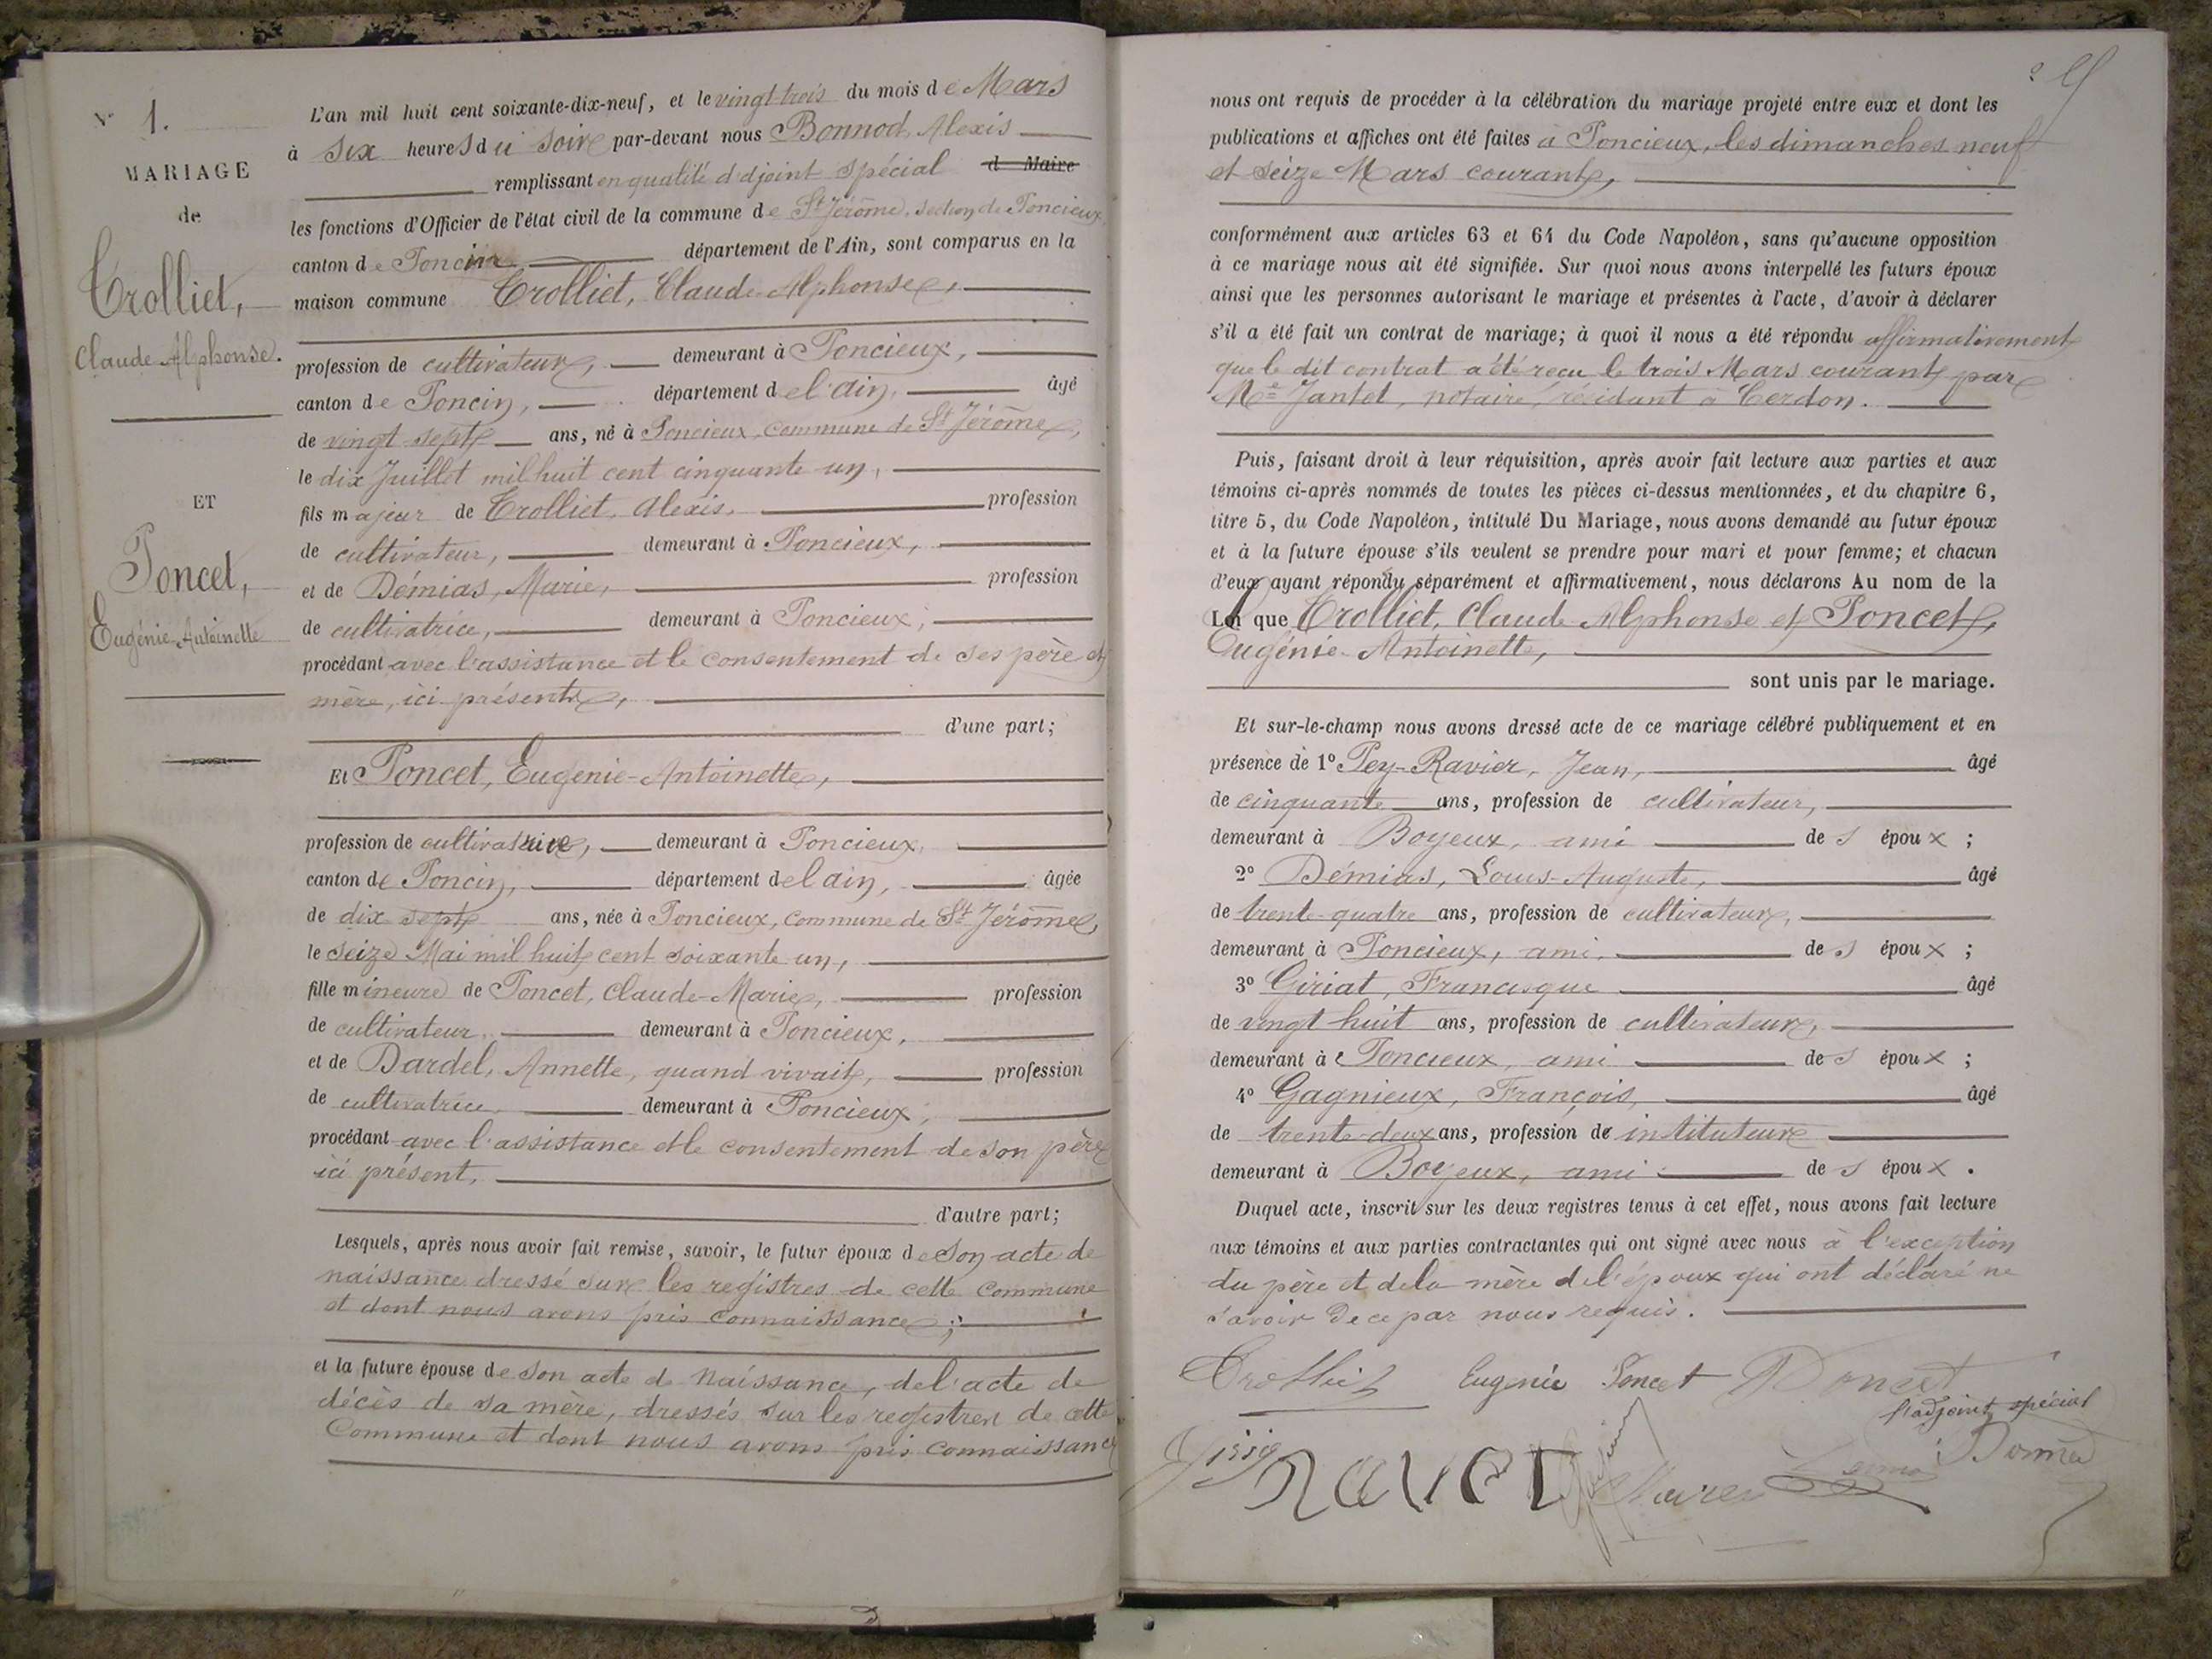 N° 1.
MARIAGE
de
Trolliet,
Claude Alphonse.
ET
Poncet,
Eugénie Antoinette
L'an mil huit cent soixante-dix-neuf, et le vingt-trois du mois de Mars
à six heures du soir par-devant nous Bonnod, Alexis
remplissant en qualité d'djoint spécial d Maire
les fonctions d'Officier de l'état civil de la commune de St Jérôme, section de Poncieux,
canton de Poncin département de l'Ain, sont comparus en la
maison commune Trolliet, Claude-Alphonse,
profession de cultivateur, demeurant à Poncieux,
canton de Poncin, département de l'ain, âgé
de vingt sept ans, né à Poncieux, commune de St Jérôme,
le dix Juillet mil huit cent cinquante un,
fils majeur de Trolliet, Alexis, profession
de cultivateur, demeurant à Poncieux,
et de Démias, Marie, profession
de cultivatrice, demeurant à Poncieux,
procédant avec l'assistance et le consentement de ses père et
mère, ici présents,
d'une part;
Et Poncet, Eugénie-Antoinette,
profession de cultivatrice, demeurant à Poncieux,
canton de Poncin, département de l'ain, âgée
de dix sept ans, née à Poncieux, commune de St Jérôme,
le seize Mai mil huit cent soixante un,
fille mineure de Poncet, Claude-Marie, profession
de cultivateur, demeurant à Poncieux,
et de Dardel, Annette, quand vivait, profession
de cultivatrice, demeurant à Poncieux,
procédant avec l'assistance et le consentement de son père
ici présent,
d'autre part;
Lesquels, après nous avoir fait remise, savoir, le futur époux de son acte de
naissance dressé sur les registres de cette commune
et dont nous avons pris connaissance;
et la future épouse de son acte de naissance, de l'acte de
décès de sa mère, dressés sur les registres de cette
Commune et dont nous avons pris connaissance
nous ont requis de procéder à la célébration du mariage projeté entre eux et dont les
publications et affiches ont été faites à Poncieux, les dimanches neuf
et seize Mars courant,
conformément aux articles 63 et 64 du Code Napoléon, sans qu'aucune opposition
à ce mariage nous ait été signifiée. Sur quoi nous avons interpellé les futurs époux
ainsi que les personnes autorisant le mariage et présentes à l'acte, d'avoir à déclarer
s'il a été fait un contrat de mariage; à quoi il nous a été répondu affirmativement
que le dit contrat a été reçu le trois Mars courant par
Me Jantet, notaire, résidant à Cerdon.
Puis, faisant droit à leur réquisition, après avoir fait lecture aux parties et aux
témoins ci-après nommés de toutes les pièces ci-dessus mentionnées, et du chapitre 6,
titre 5, du Code Napoléon, intitulé Du Mariage, nous avons demandé au futur époux
et à la future épouse s'ils veulent se prendre pour mari et pour femme; et chacun
d'eux ayant répondu séparément et affirmativement, nous déclarons Au nom de la
Loi que Trolliet, Claude Alphonse et Poncet,
Eugénie-Antoinette,
sont unis par le mariage.
Et sur-le-champ nous avons dressé acte de ce mariage célébré publiquement et en
présence de 1° Pey-Ravier, Jean, âgé
de cinquante ans, profession de cultivateur,
demeurant à Boyeux, ami de s époux ;
2° Démias, Louis-Auguste, âgé
de trente-quatre ans, profession de cultivateur,
demeurant à Poncieux, ami, de s époux ;
3° Giriat, Francisque âgé
de vingt huit ans, profession de cultivateur,
demeurant à Poncieux, ami de s époux ;
4° Gagnieux, François, âgé
de trente-deux ans, profession de instituteur
demeurant à Boyeux, ami de s époux .
Duquel acte, inscrit sur les deux registres tenus à cet effet, nous avons fait lecture
aux témoins et aux parties contractantes qui ont signé avec nous à l'exception
du père et de la mère de l'époux qui ont déclaré ne
savoir de ce par nous requis.
Trolliet Eugenie Poncet Poncet
l'adjoint spécial
raver